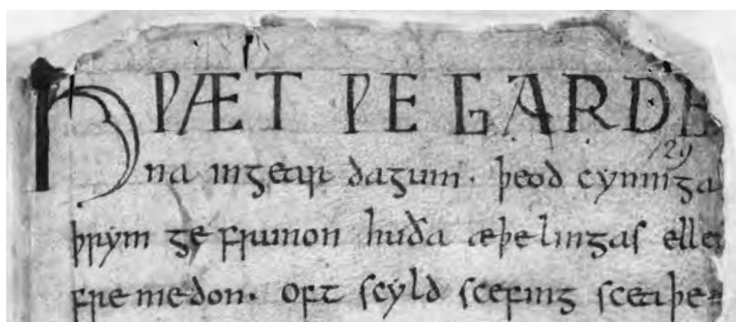 HǷÆT ǷE GARDE
129
na ingear dagum . þeod cyninga
þrym ge frunon huða æþelingas elle
fre medon. oft scyld scefing sceaþe